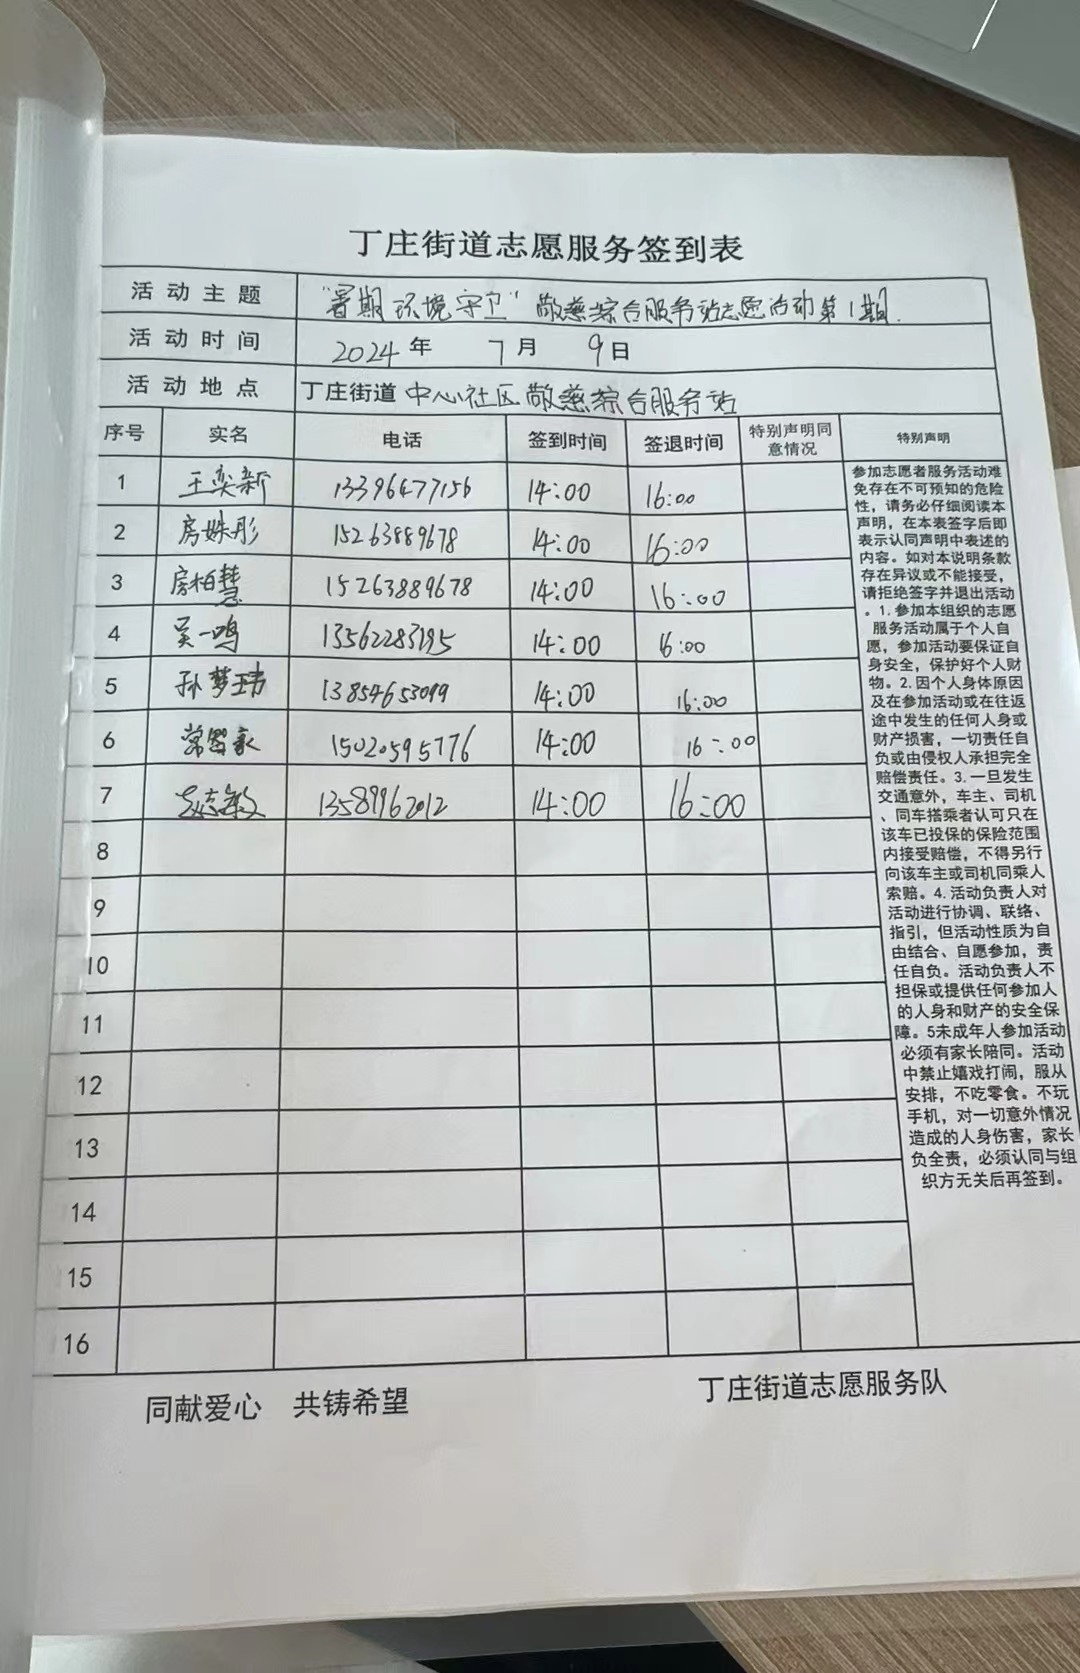 丁庄街道志愿服务签到表
活动主题 "暑期环境守卫"敬慈综合服务站志愿活动第1期.
活动时间 2024年 7月 9日
活动地点 丁庄街道 中心社区敬慈综合服务站
序号 实名 电话 签到时间 签退时间 特别声明同意情况 特别声明
1 王奕新 13396477156 14:00 16:00
2 房姝彤 15263889678 14:00 16:00
3 房柏慧 15263889678 14:00 16:00
4 吴一鸣 13562283195 14:00 16:00
5 孙梦玮 13854653099 14:00 16:00
6 常 15020595776 14:00 16:00
7 13589962012 14:00 16:00
8
9
10
11
12
13
14
15
16
参加志愿者服务活动难
免存在不可预知的危险
性，请务必仔细阅读本
声明，在本表签字后即
表示认同声明中表述的
内容。如对本说明条款
存在异议或不能接受，
请拒绝签字并退出活动
。1.参加本组织的志愿
服务活动属于个人自
愿，参加活动要保证自
身安全，保护好个人财
物。2.因个人身体原因
及在参加活动或在往返
途中发生的任何人身或
财产损害，一切责任自
负或由侵权人承担完全
赔偿责任。3.一旦发生
交通意外，车主、司机
、同车搭乘者认可只在
该车已投保的保险范围
内接受赔偿，不得另行
向该车主或司机同乘人
索赔。4.活动负责人对
活动进行协调、联络、
指引，但活动性质为自
由结合、自愿参加，责
任自负。活动负责人不
担保或提供任何参加人
的人身和财产的安全保
障。5未成年人参加活动
必须有家长陪同。活动
中禁止嬉戏打闹，服从
安排，不吃零食。不玩
手机，对一切意外情况
造成的人身伤害，家长
负全责，必须认同与组
织方无关后再签到。
同献爱心 共铸希望 丁庄街道志愿服务队